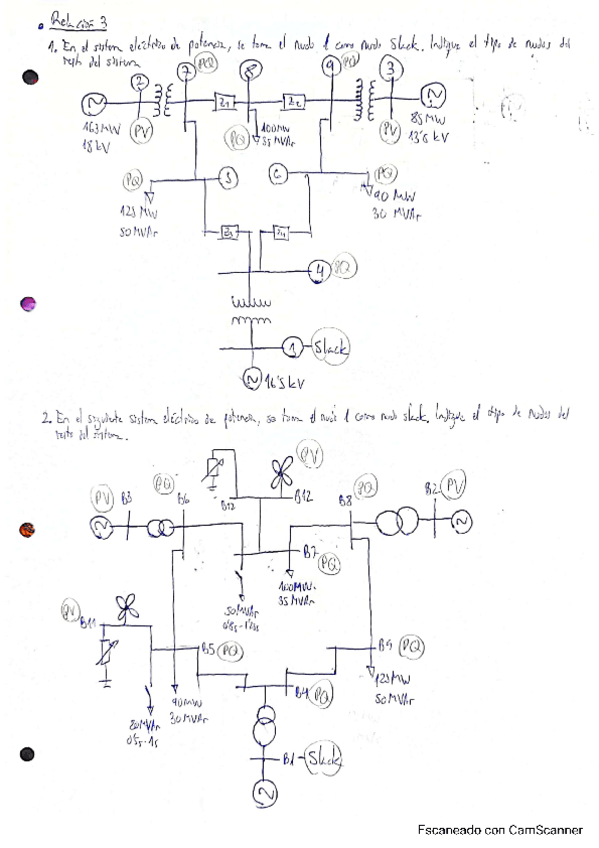 Relación 3
1. En el sistema eléctrico de potencia, se toma el nudo 1 como nudo Slack. Indique el tipo de nudos del
resto del sistema
2 7 PQ 8 9 PQ 3
Z1 Z2
163 MW
18 kV
PV
PQ
100MW
35 MVAr
PV
85 MW
13'8 kV
PQ
5 6
PQ
125 MW
50 MVAr
90 MW
30 MVAr
Z3
4
1 Slack
16'5 kV
2. En el siguiente sistema eléctrico de potencia, se toma el nudo 1 como nudo slack. Indique el tipo de nudos del
resto del sistema.
PV
PV B3 PQ B6
B12 B12
B8 PQ B2 PV
B7
PQ
50 MVAr
100MW
35 MVAr
PV
B11
B5 PQ
PQ
90MW
30MVAr
B4 PQ
125 MW
50 MVAr
B1 - Slack
Escaneado con CamScanner